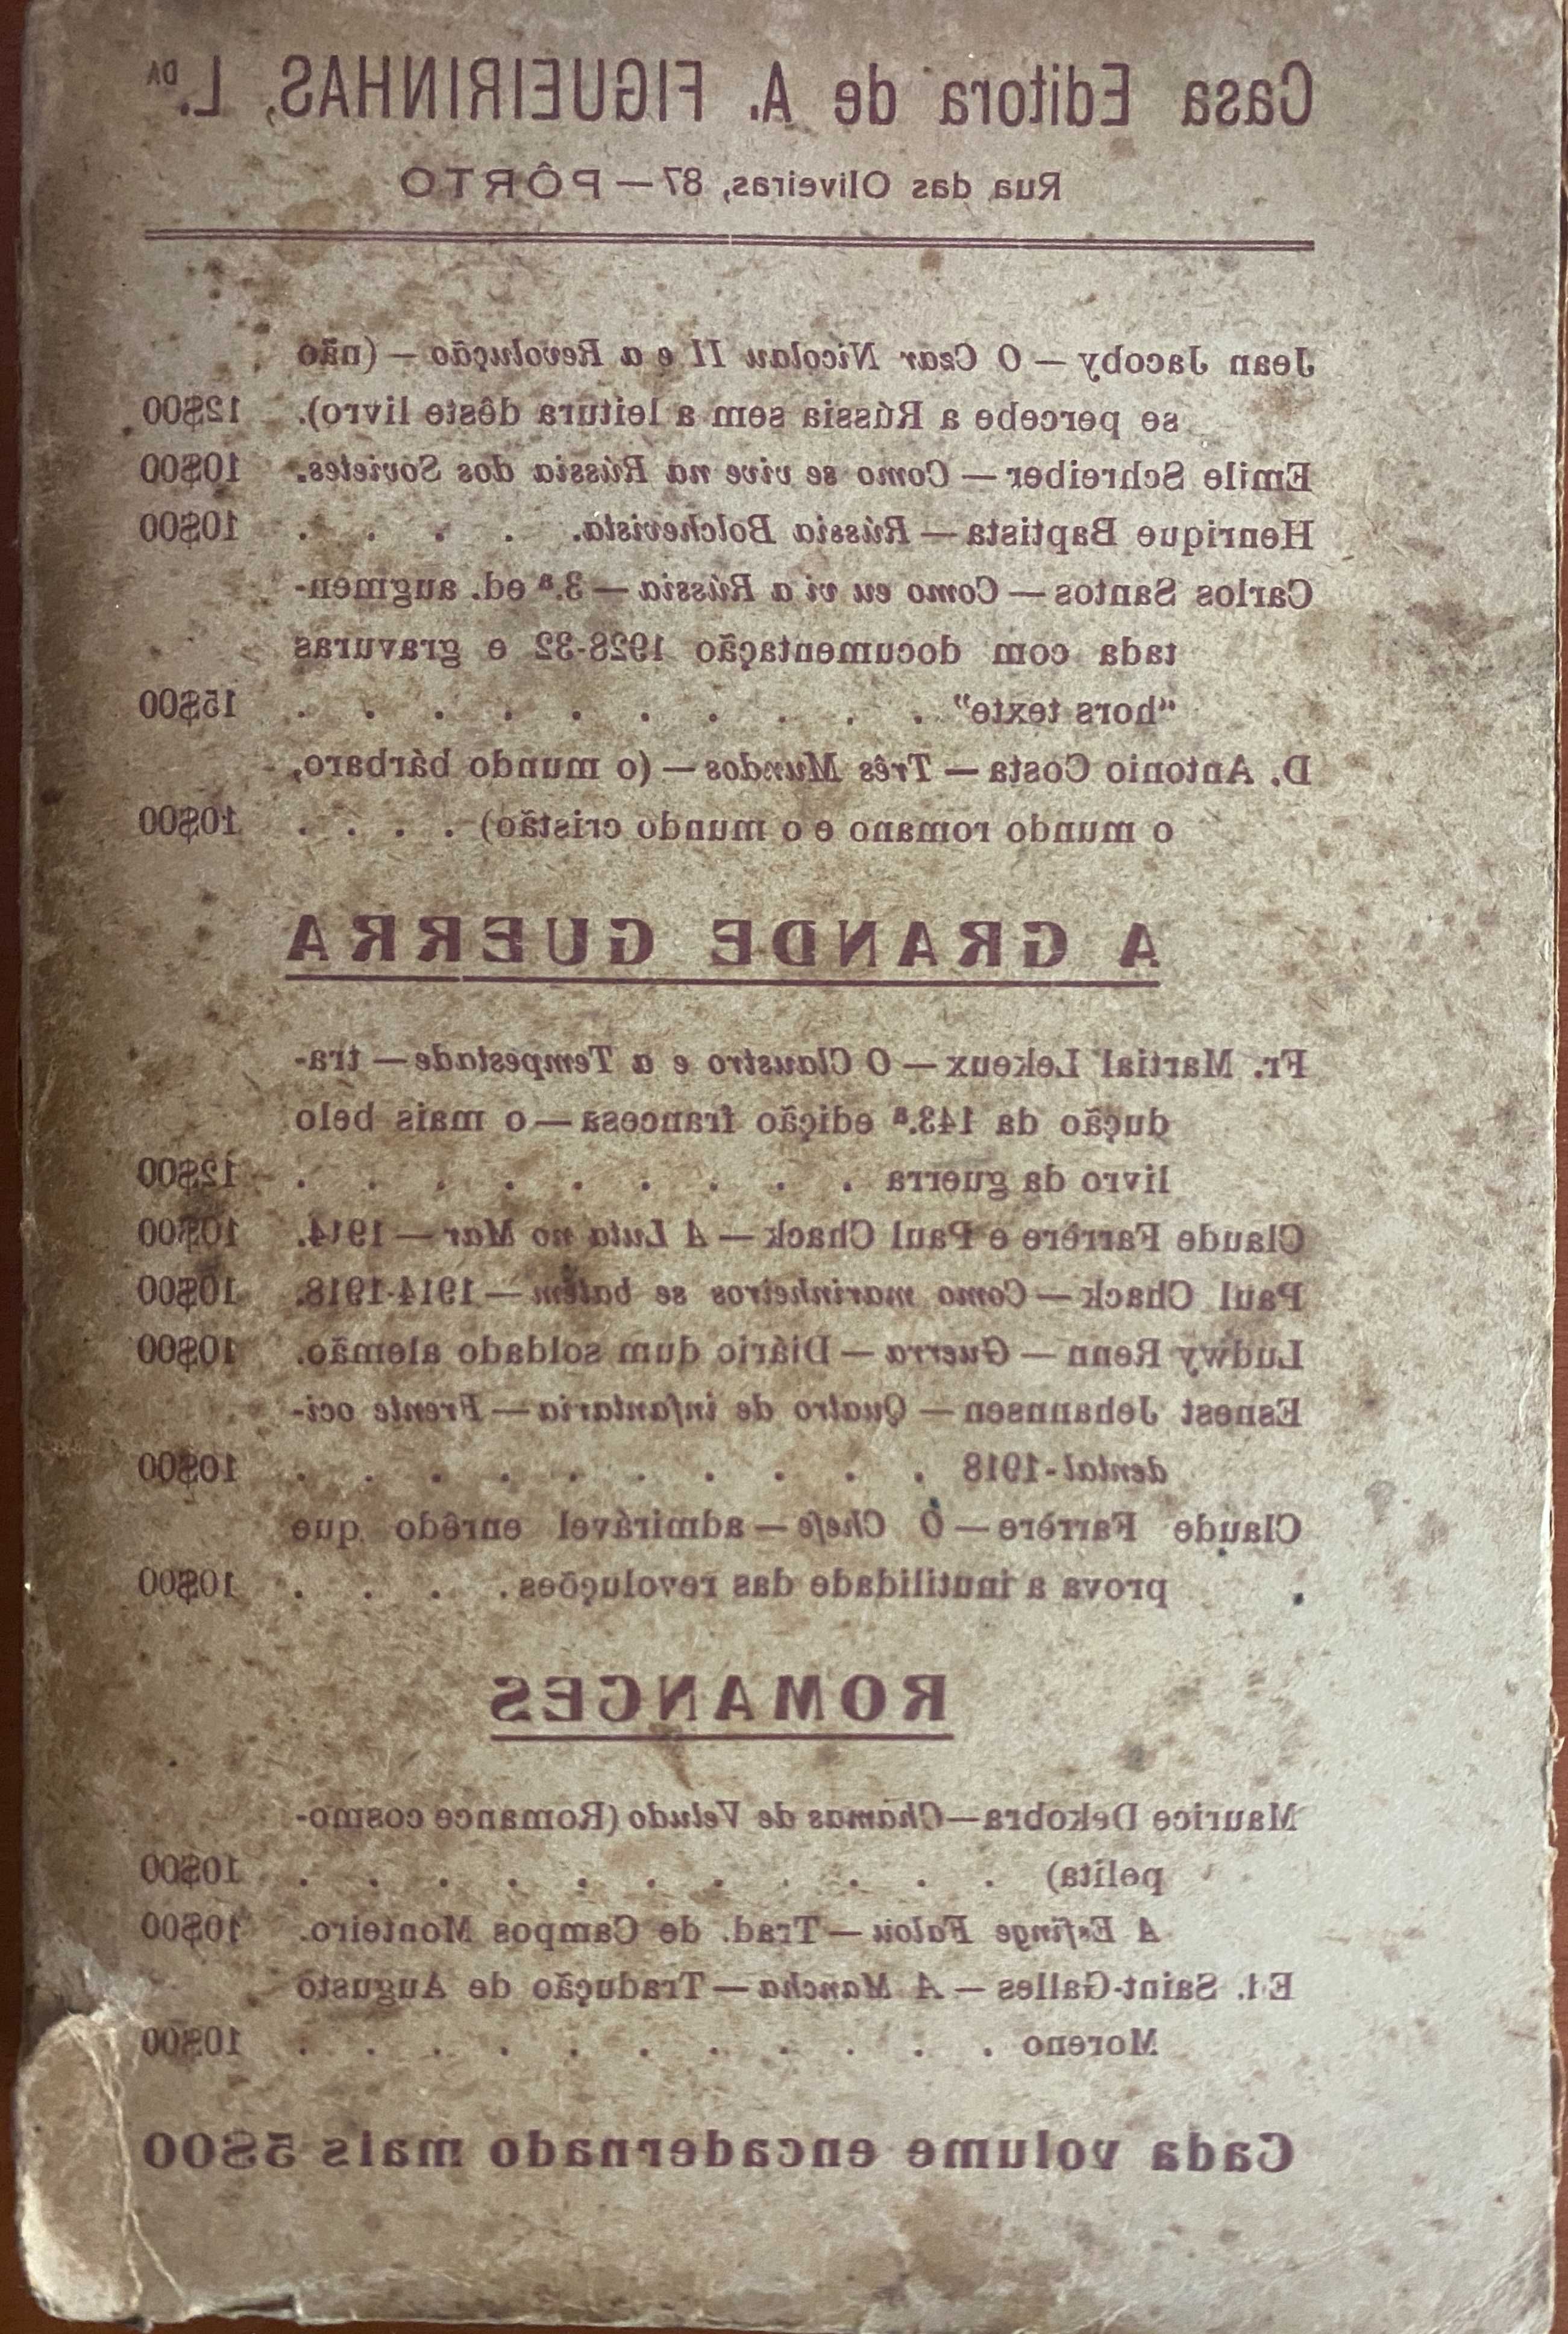 Casa Editora de A. FIGUEIRINHAS, L.DA
Rua das Oliveiras, 87—PÔRTO
Jean Jacoby—O Czar Nicolau II e a Revolução—(não
se percebe a Rússia sem a leitura dêste livro). 12$00
Emile Schreiber—Como se vive na Rússia dos Sovietes. 10$00
Henrique Baptista—Rússia Bolchevista. . . . . 10$00
Carlos Santos—Como eu vi a Rússia—3.ª ed. augmen-
tada com documentação 1928-32 e gravuras
“hors texte” . . . . . . . . . . 15$00
D. Antonio Costa—Três Mundos—(o mundo bárbaro,
o mundo romano e o mundo cristão) . . . 10$00
A GRANDE GUERRA
Fr. Martial Lekeux—O Claustro e a Tempestade—tra-
dução da 143.ª edição francesa—o mais belo
livro da guerra . . . . . . . . . 12$00
Claude Farrère e Paul Chack—A Luta no Mar—1914. 10$00
Paul Chack—Como marinheiros se batem—1914-1918. 10$00
Ludwy Renn—Guerra—Diário dum soldado alemão. 10$00
Esnest Johannsen—Quatro de infantaria—Frente oci-
dental-1918 . . . . . . . . . . 10$00
Claude Farrère—O Chefe—admirável enrêdo que
prova a inutilidade das revoluções. . . . 10$00
ROMANCES
Maurice Dekobra—Chamas de Veludo (Romance cosmo-
pelita) . . . . . . . . . . . 10$00
A Esfinge Falou—Trad. de Campos Monteiro. 10$00
Ed. Saint-Galles—A Mancha—Tradução de Augusto
Moreno . . . . . . . . . . . 10$00
Cada volume encadernado mais 5$00